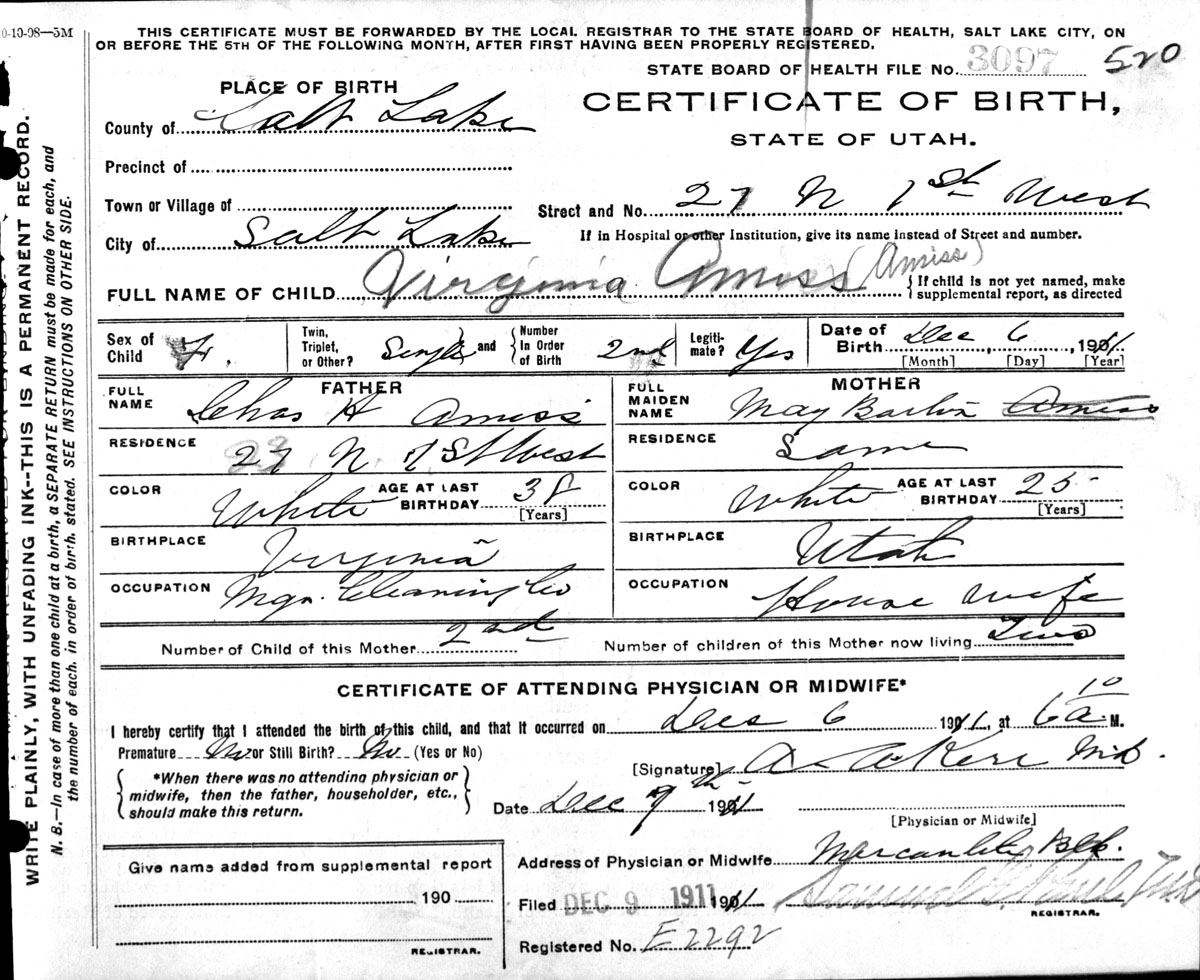 0-10-08—5M
THIS CERTIFICATE MUST BE FORWARDED BY THE LOCAL REGISTRAR TO THE STATE BOARD OF HEALTH, SALT LAKE CITY, ON
OR BEFORE THE 5TH OF THE FOLLOWING MONTH, AFTER FIRST HAVING BEEN PROPERLY REGISTERED.
STATE BOARD OF HEALTH FILE No. 3097 520
PLACE OF BIRTH
CERTIFICATE OF BIRTH,
STATE OF UTAH.
County of Salt Lake
Precinct of
Town or Village of
Street and No. 27 N 1st West
City of Salt Lake
If in Hospital or other Institution, give its name instead of Street and number.
FULL NAME OF CHILD Virginia Amiss (Amiss)
{ If child is not yet named, make
supplemental report, as directed
Sex of Child F.
Twin, Triplet, or Other? Single and { Number In Order of Birth 2nd
Legiti-mate? Yes
Date of Birth Dec 6, 1911
[Month] [Day] [Year]
FATHER
FULL NAME Chas H Amiss
RESIDENCE 27 N 1 St West
COLOR White AGE AT LAST BIRTHDAY 38
[Years]
BIRTHPLACE Virginia
OCCUPATION Mgr. Cleaning Co
MOTHER
FULL MAIDEN NAME May Barton Amiss
RESIDENCE Same
COLOR White AGE AT LAST BIRTHDAY 25
[Years]
BIRTHPLACE Utah
OCCUPATION House wife
Number of Child of this Mother 2nd
Number of children of this Mother now living Two
CERTIFICATE OF ATTENDING PHYSICIAN OR MIDWIFE*
I hereby certify that I attended the birth of this child, and that it occurred on Dec 6 1911, at 6 10 a M.
Premature No or Still Birth? No (Yes or No)
{ *When there was no attending physician or
midwife, then the father, householder, etc.,
should make this return. }
[Signature] A. A. Kerr MD.
Date Dec 7th 1911
[Physician or Midwife]
Give name added from supplemental report
190
REGISTRAR.
Address of Physician or Midwife Mercantile Blk.
Filed DEC 9 1911 1901
Samuel G. MD
REGISTRAR.
Registered No. E2292
WRITE PLAINLY, WITH UNFADING INK--THIS IS A PERMANENT RECORD.
N. B.—In case of more than one child at a birth, a SEPARATE RETURN must be made for each, and
the number of each, in order of birth, stated. SEE INSTRUCTIONS ON OTHER SIDE.